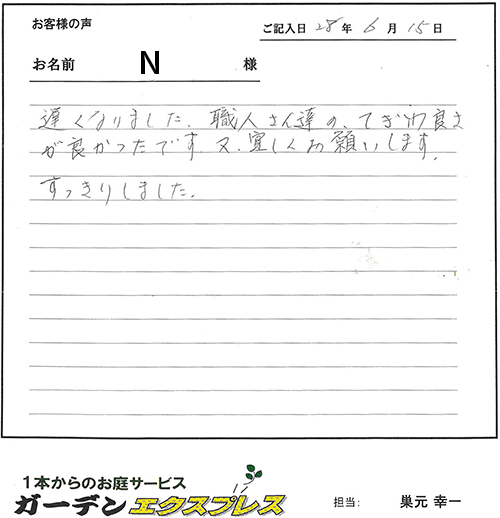 お客様の声
ご記入日 28 年 6 月 15 日
お名前 N 様
遅くなりました、職人さん達の、てぎわ良さ
が良かったです 又、宜しくお願いします。
すっきりしました。
1本からのお庭サービス
ガーデンエクスプレス
担当: 巣元 幸一